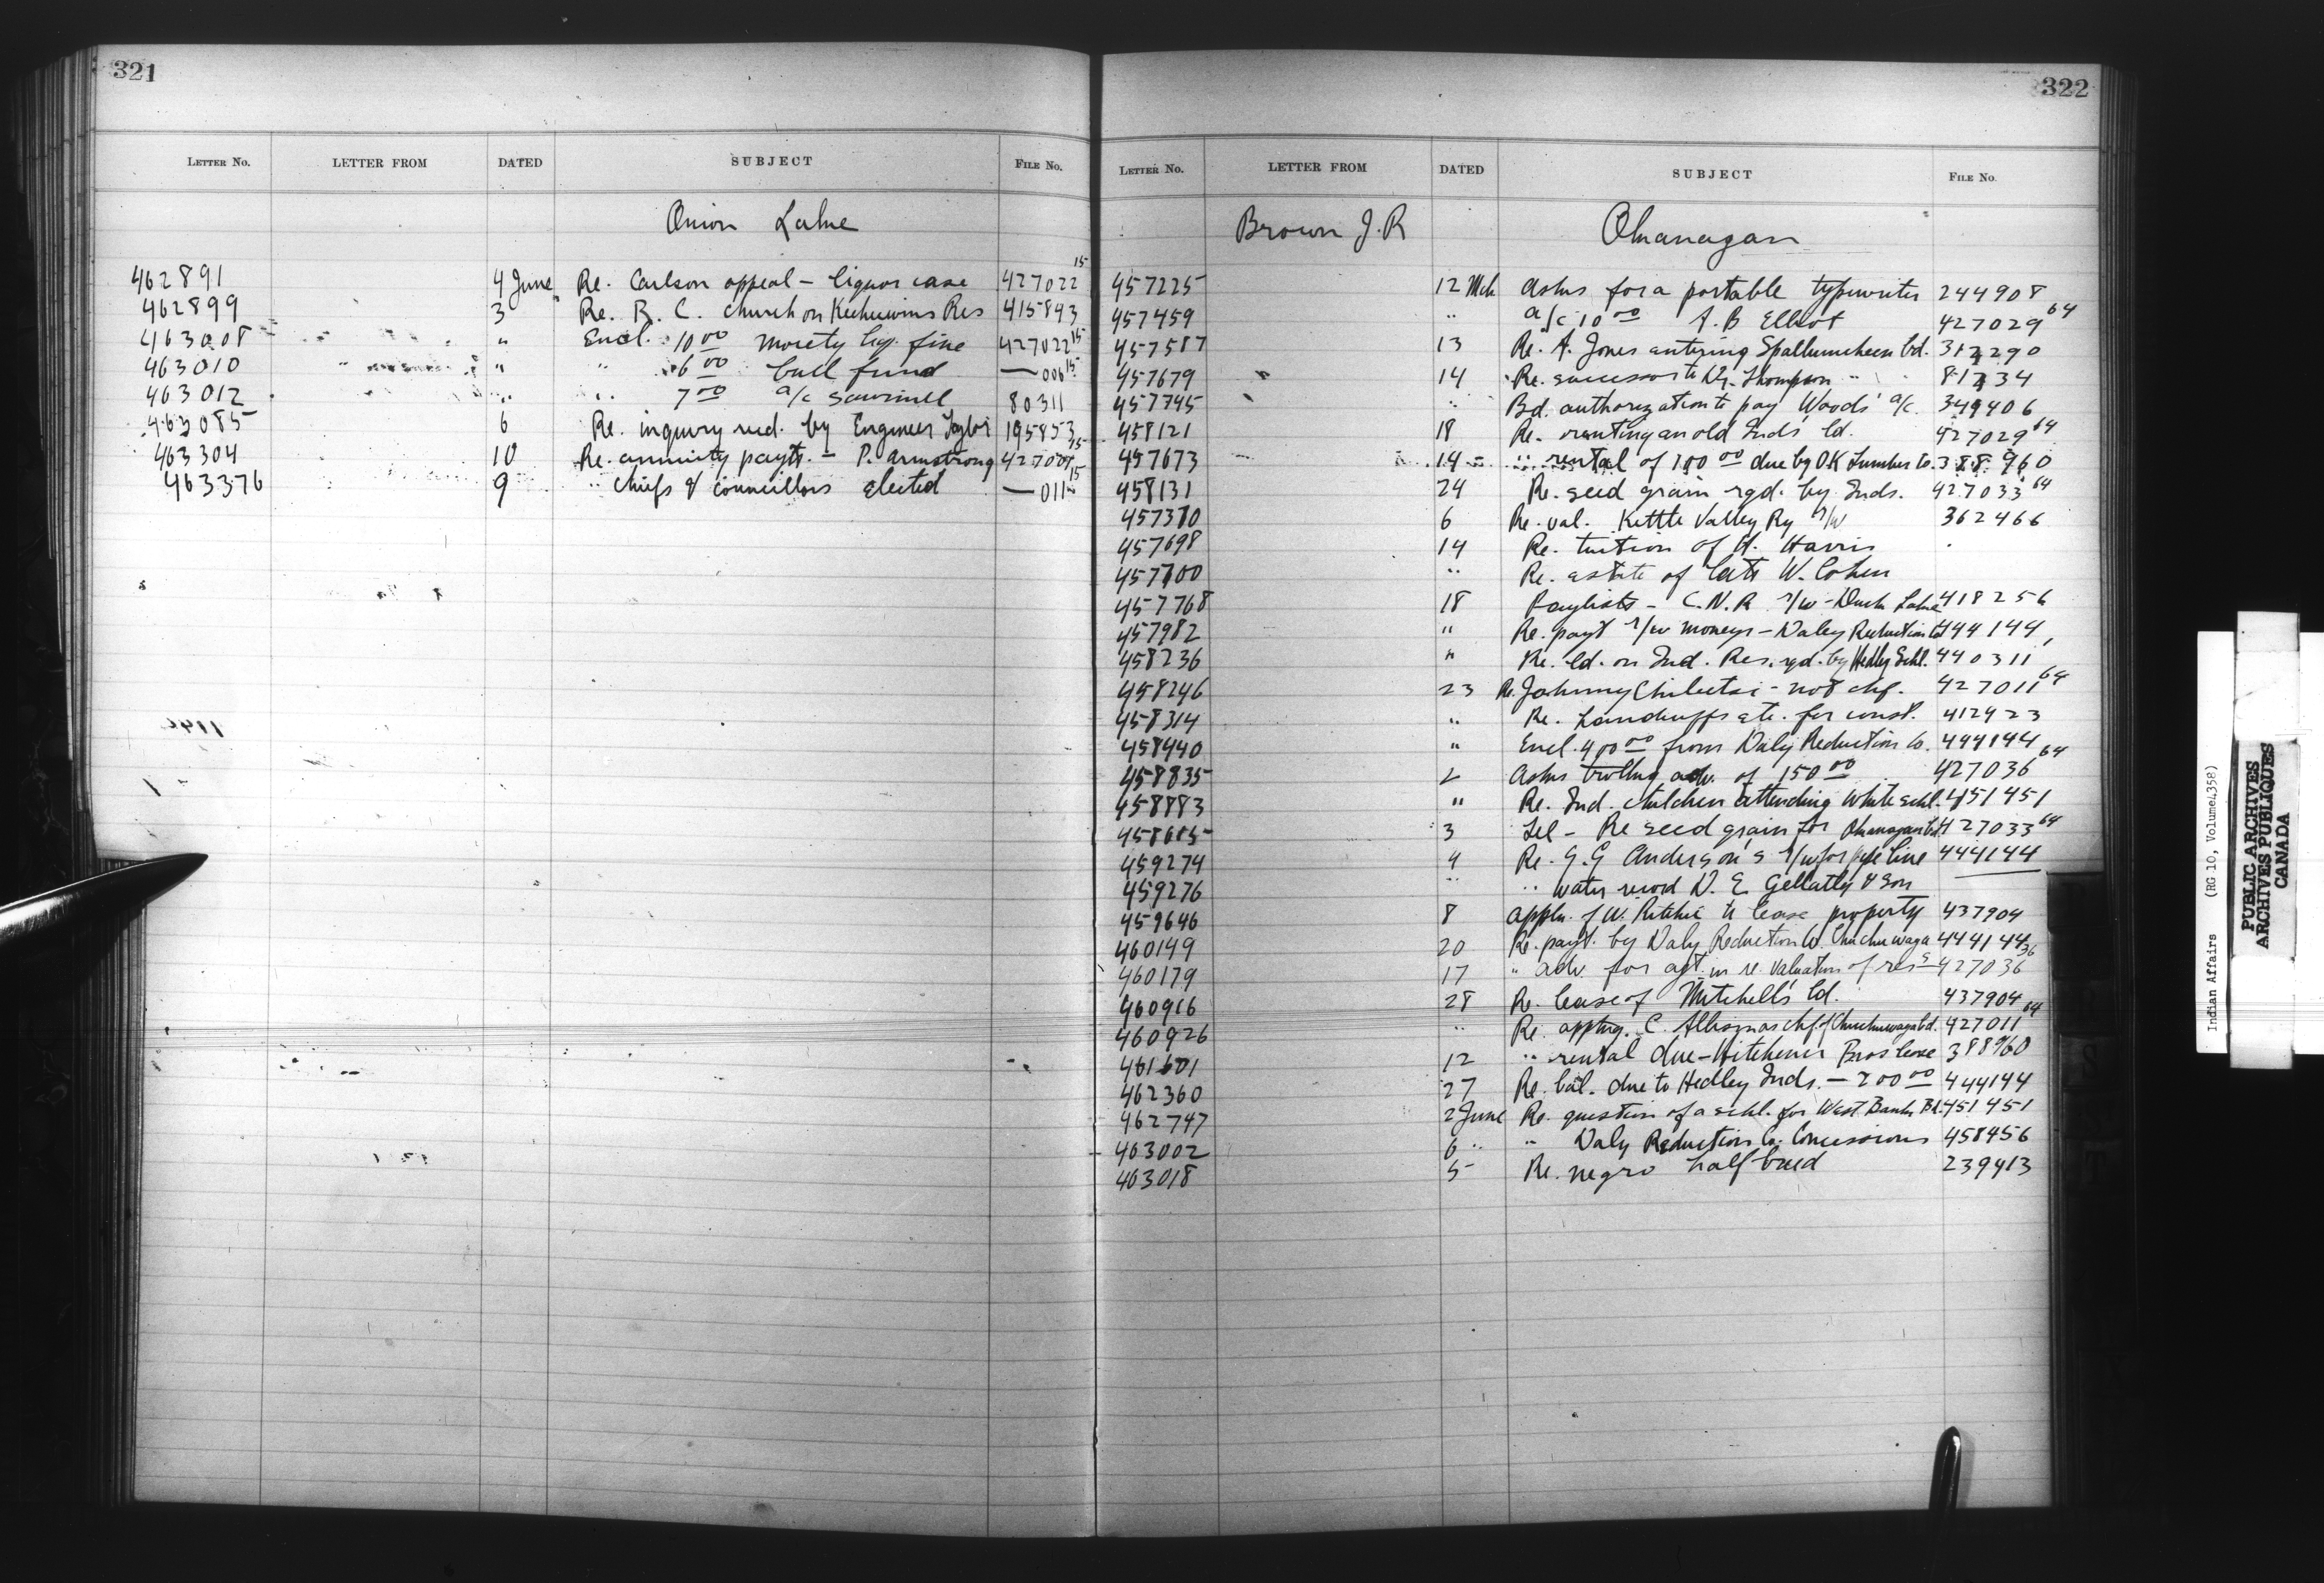 321
LETTER No. LETTER FROM DATED SUBJECT FILE No.
Onion Lake
462891 4 June Re. Carlson appeal - liquor case 427022 15
462899 3 " Re. R. C. Church on Keeheewins Res 415893
463008 " Encl. 10 00 moiety liq. fine 427022 15
463010 " " 6 00 bull fund — 006 15
463012 " " 7 00 a/c sawmill 80311
463085 6 Re. inquiry recd. by Engineer Taylor 195853
463304 10 Re. annuity payts. - P. Armstrong 15
463376 9 " chiefs & councillors elected — 011 15
322
LETTER No. LETTER FROM DATED SUBJECT FILE No.
Brown J. R Okanagan
457225 12 Mch Asks for a portable typewriter 244908
457459 " a/c 10 00 A. B Elliot 427029 64
457587 13 Re. A. Jones entering Spallumcheen bd. 312290
457679 14 Re. successor to Dr. Thompson 81334
457745 " Bd. authorization to pay Woods' a/c. 349406
458121 18 Re. renting an old Inds ld. 427029 64
457673 14 " rental of 100 00 due by O.K Lumber Co. 388960
458131 24 Re. seed grain rqd. by Inds. 427033 64
457310 6 Re. val. Kettle Valley Ry r/w 362466
457698 14 Re. tuition of H. Harris
457700 " Re. estate of late W. Cohen
457768 18 Paylists - C.N.R r/w - Duck Lake 418256
457982 " Re. payt r/w moneys - Daley Reduction Co 444144
458236 " Re. ld. on Ind. Res. rqd. by Hedley Schl. 440311
458246 23 Re. Johnny - not chf. 427011 64
458314 " Re. handcuffs etc. for const. 412423
458440 " Encl. 400 00 from Daly Reduction Co. 444144
458835 2 Asks trvllng adv. of 150 00 427036 64
458883 " Re. Ind. children attending White schl. 451451
458685 3 Tel - Re seed grain for Okanagan bd. 427033 64
459274 4 Re. G. G Anderson's r/w for pipe line 444144
459276 " " water record D. E. Gellatly & Son —
459646 8 Appln. of W. Ritchie to lease property 437904
460149 20 Re. payt. by Daly Reduction Co. Chuchuwaga 444144
460179 17 " adv. for agt. in re. valuation of res s 427036 36
460916 28 Re. lease of Mitchell's ld. 437904
460926 " Re. apptng. C. Allison as chf. of Chuchuwaga bd. 427011 64
461601 12 " rental due - Hitchener Bros lease 388960
462360 27 Re. bal. due to Hedley Inds. — 200 00 444144
462747 2 June Re. question of a schl. for West Bank Bd. 451451
463002 6 " " Daly Reduction Co. Concessions 458456
463018 5 Re. negro half breed 239413
Indian Affairs (RG 10, Volume 4358)
PUBLIC ARCHIVES
ARCHIVES PUBLIQUES
CANADA